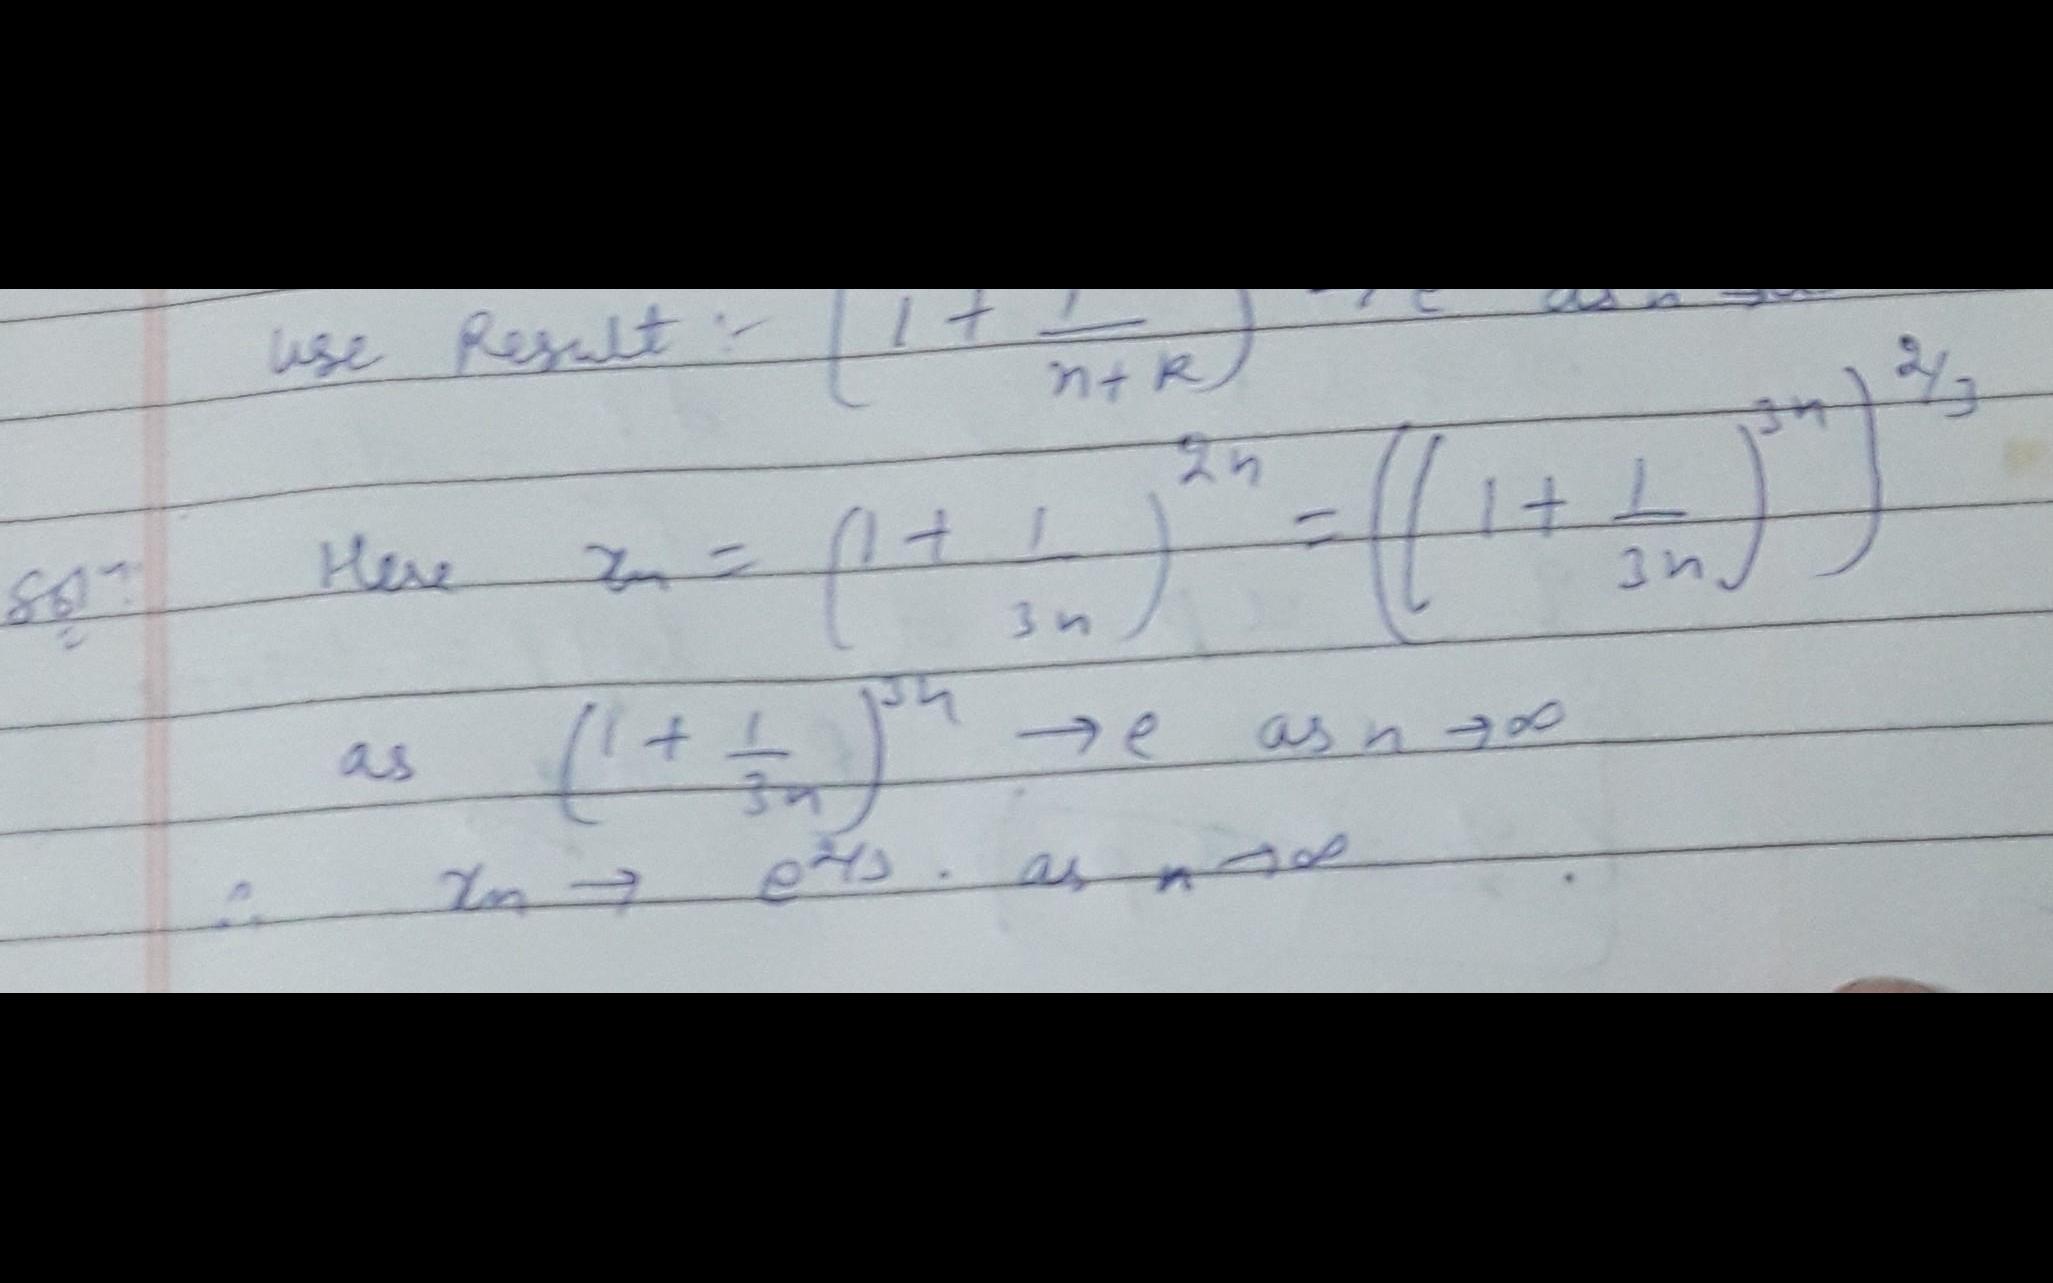 use Result :- (1 + 1/(n+k)) → e as n → ∞
Solⁿ: Here xₙ = (1 + 1/3n)^2n = ((1 + 1/3n)^3n)^2/3
as (1 + 1/3n)^3n → e as n → ∞
∴ xₙ → e^2/3 . as n → ∞